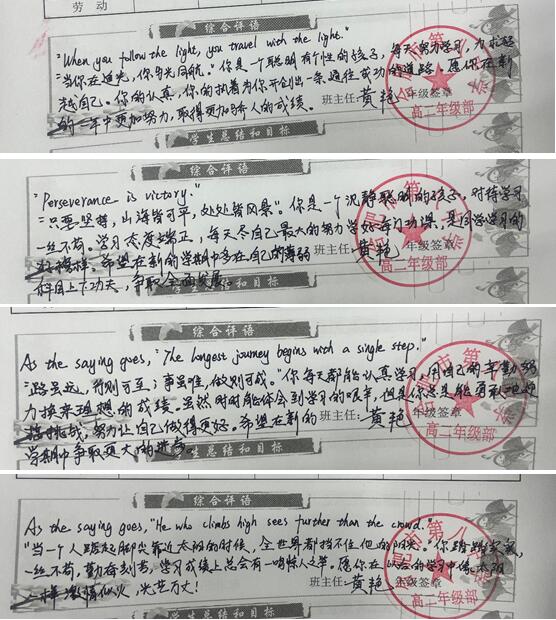 劳动
综合评语
"When you follow the light, you travel with the light."
"当你在追光,你与光同航。"你是一个聪明有个性的孩子,每天努力学习,力求超
越自己。你的认真,你的执着为你开创出一条通往成功的道路,愿你在新
的一年中更加努力,取得更加骄人的成绩。
班主任:黄艳 年级签章
高二年级部
学生总结和目标
综合评语
"Perseverance is victory."
"只要坚持,山海皆可平,处处皆风景"。你是一个沉静聪明的孩子,对待学习
一丝不苟。学习态度端正,每天尽自己最大的努力学好每门功课,是同学学习的
好榜样。希望在新的学期中多在自己的薄弱
班主任:黄艳 年级签章
科目上下功夫,争取全面发展。
高二年级部
和目标
综合评语
As the saying goes, "The longest journey begins with a single step."
"路虽远,行则可至;事虽难,做则可成。"你每天都能认真学习,用自己的辛勤努
力换来理想的成绩。虽然时时能体会到学习的艰辛,但是你总是能勇敢地迎
接挑战,努力让自己做得更好。希望在新的
班主任:黄艳 年级签章
学期中争取更大的进步。
高二年级部
学生总结和目标
综合评语
As the saying goes, "He who climbs high sees further than the crowd."
"当一个人踮起脚尖靠近太阳的时候,全世界都挡不住他的阳光。"你踏踏实实,
一丝不苟,勤奋刻苦,学习成绩上总会有一鸣惊人之举。愿你在以后的学习中像太阳
一样激情似火,光芒万丈!
班主任:黄艳 年级签章
高二年级部
学生总结和目标